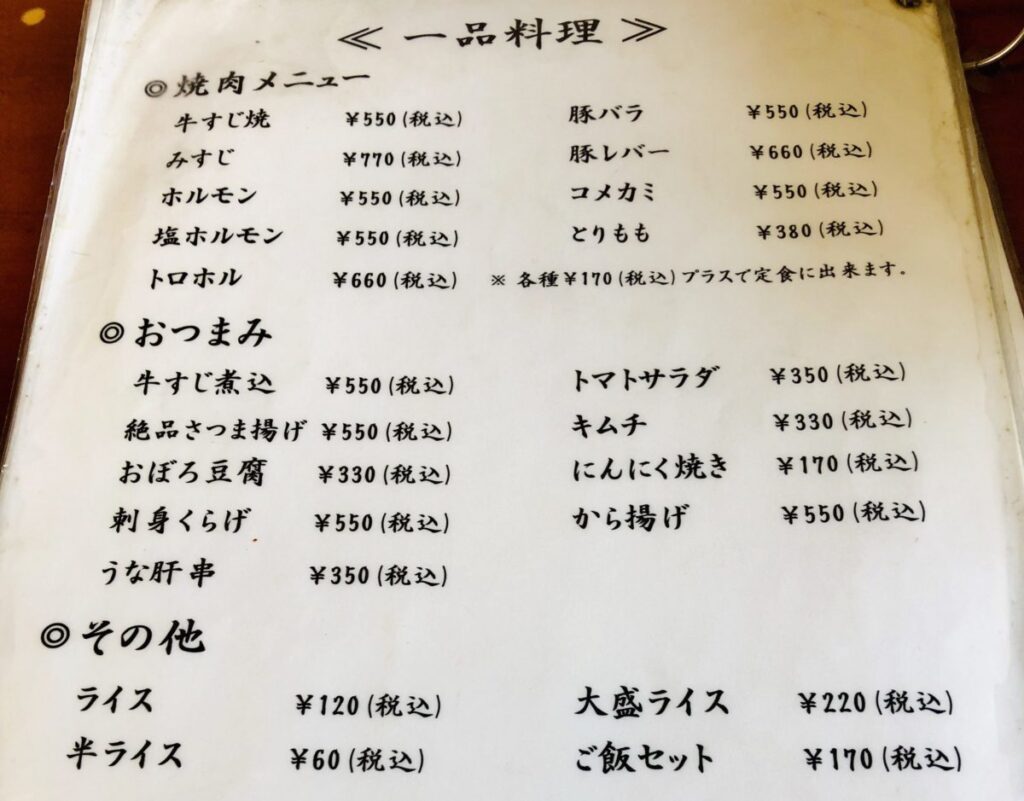 ≪ 一品料理 ≫
◎ 焼肉メニュー
牛すじ焼 ¥550(税込) 豚バラ ¥550(税込)
みすじ ¥770(税込) 豚レバー ¥660(税込)
ホルモン ¥550(税込) コメカミ ¥550(税込)
塩ホルモン ¥550(税込) とりもも ¥380(税込)
トロホル ¥660(税込) ※ 各種¥170(税込)プラスで定食に出来ます。
◎ おつまみ
牛すじ煮込 ¥550(税込) トマトサラダ ¥350(税込)
絶品さつま揚げ ¥550(税込) キムチ ¥330(税込)
おぼろ豆腐 ¥330(税込) にんにく焼き ¥170(税込)
刺身くらげ ¥550(税込) から揚げ ¥550(税込)
うな肝串 ¥350(税込)
◎ その他
ライス ¥120(税込) 大盛ライス ¥220(税込)
半ライス ¥60(税込) ご飯セット ¥170(税込)